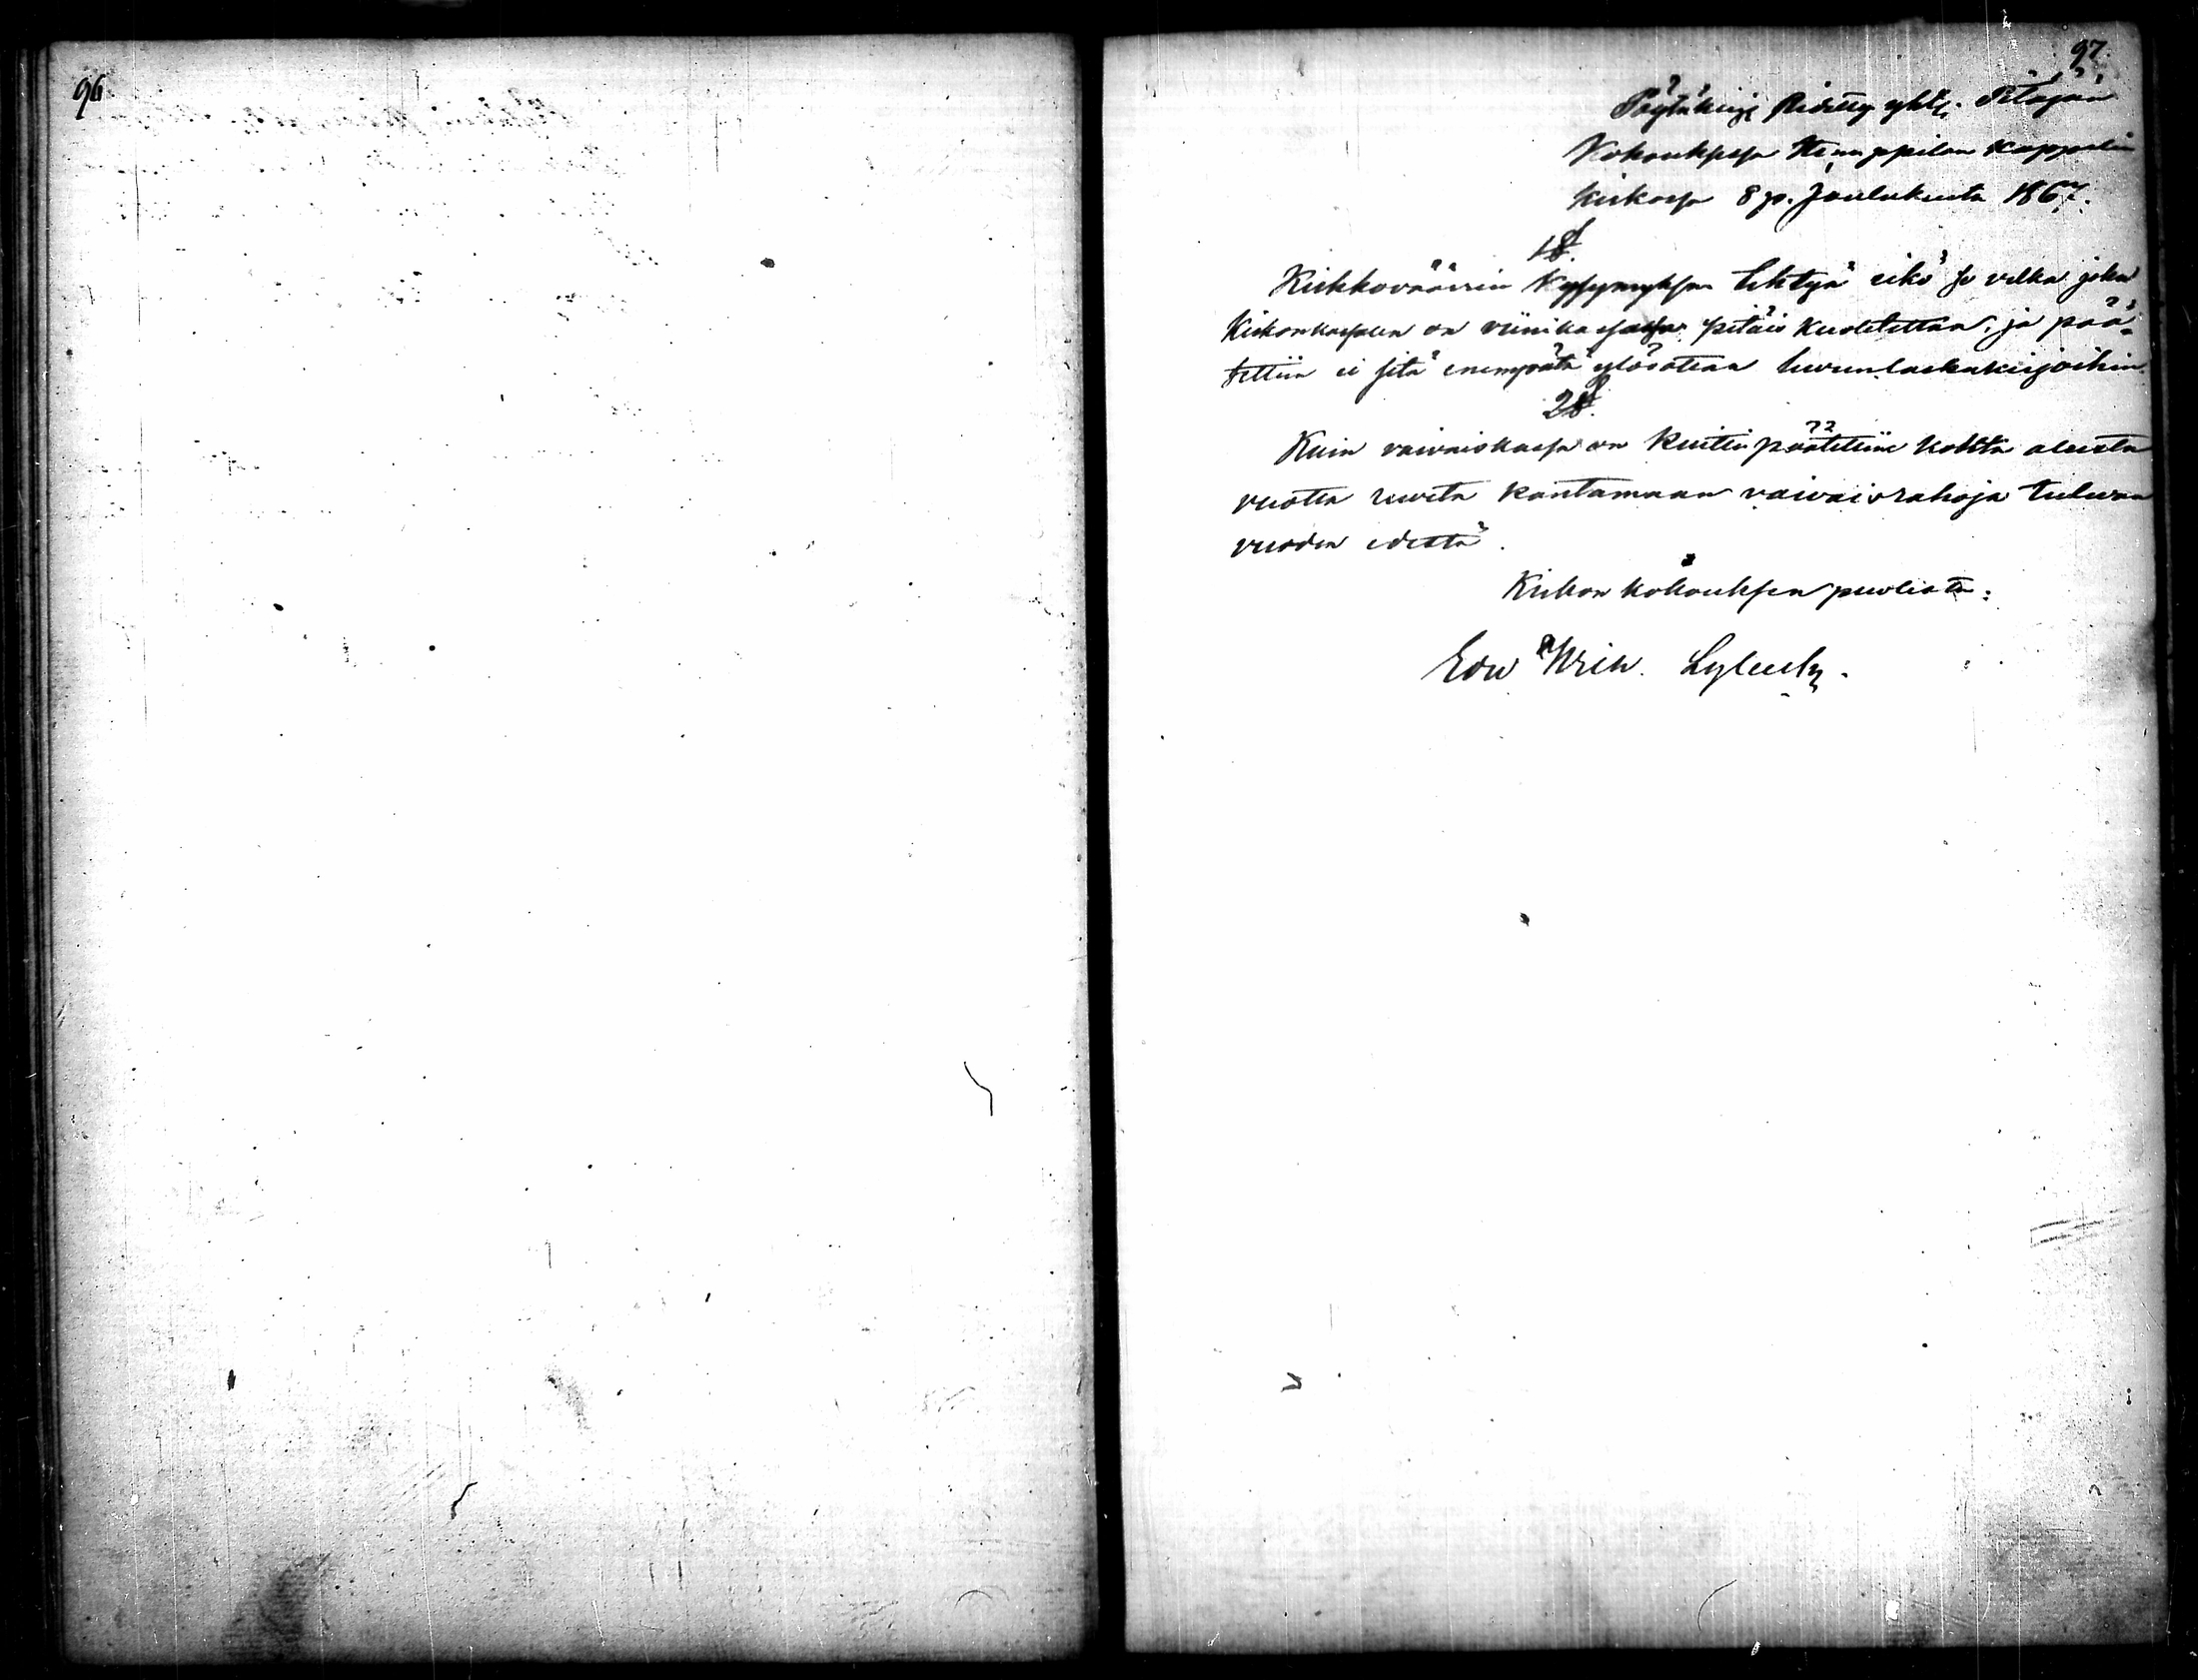 96
97
Pöytäkirja pidetty yht. Pitäjän
Kokouksessa Hinnerjoen Kappelin
Kirkossa 8 p. Joulukuuta 1867.
1 §.
Kirkkoväärtin Kysymyksen tehtyä eikö se velka joka
Kirkonkassalla on viinikassassa pitäis kuoletettaa, ja pää-
tettiin ei sitä enempätä ylösottaa luvunlaskukirjoihin.
2 §.
Kuin vaivaiskassa on kuitti päätettiin kohta alusta
vuotta ruveta kantamaan vaivaisrahoja tulevan
vuoden edestä.
Kirkon kokouksen puolesta:
Edv Hrik.